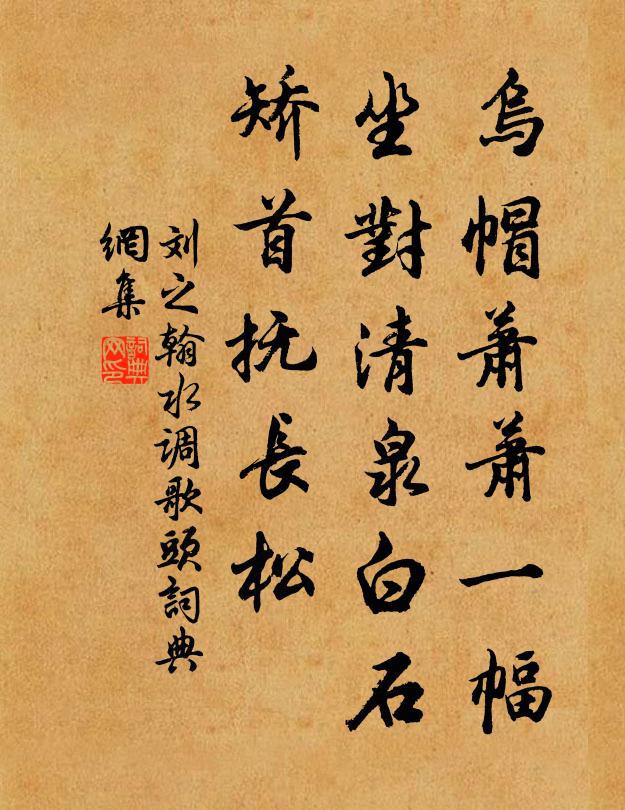 烏帽蕭蕭一幅
坐對清泉白石
矫首抚長松
刘之翰水调歌頭詞典
網集
詞典網印